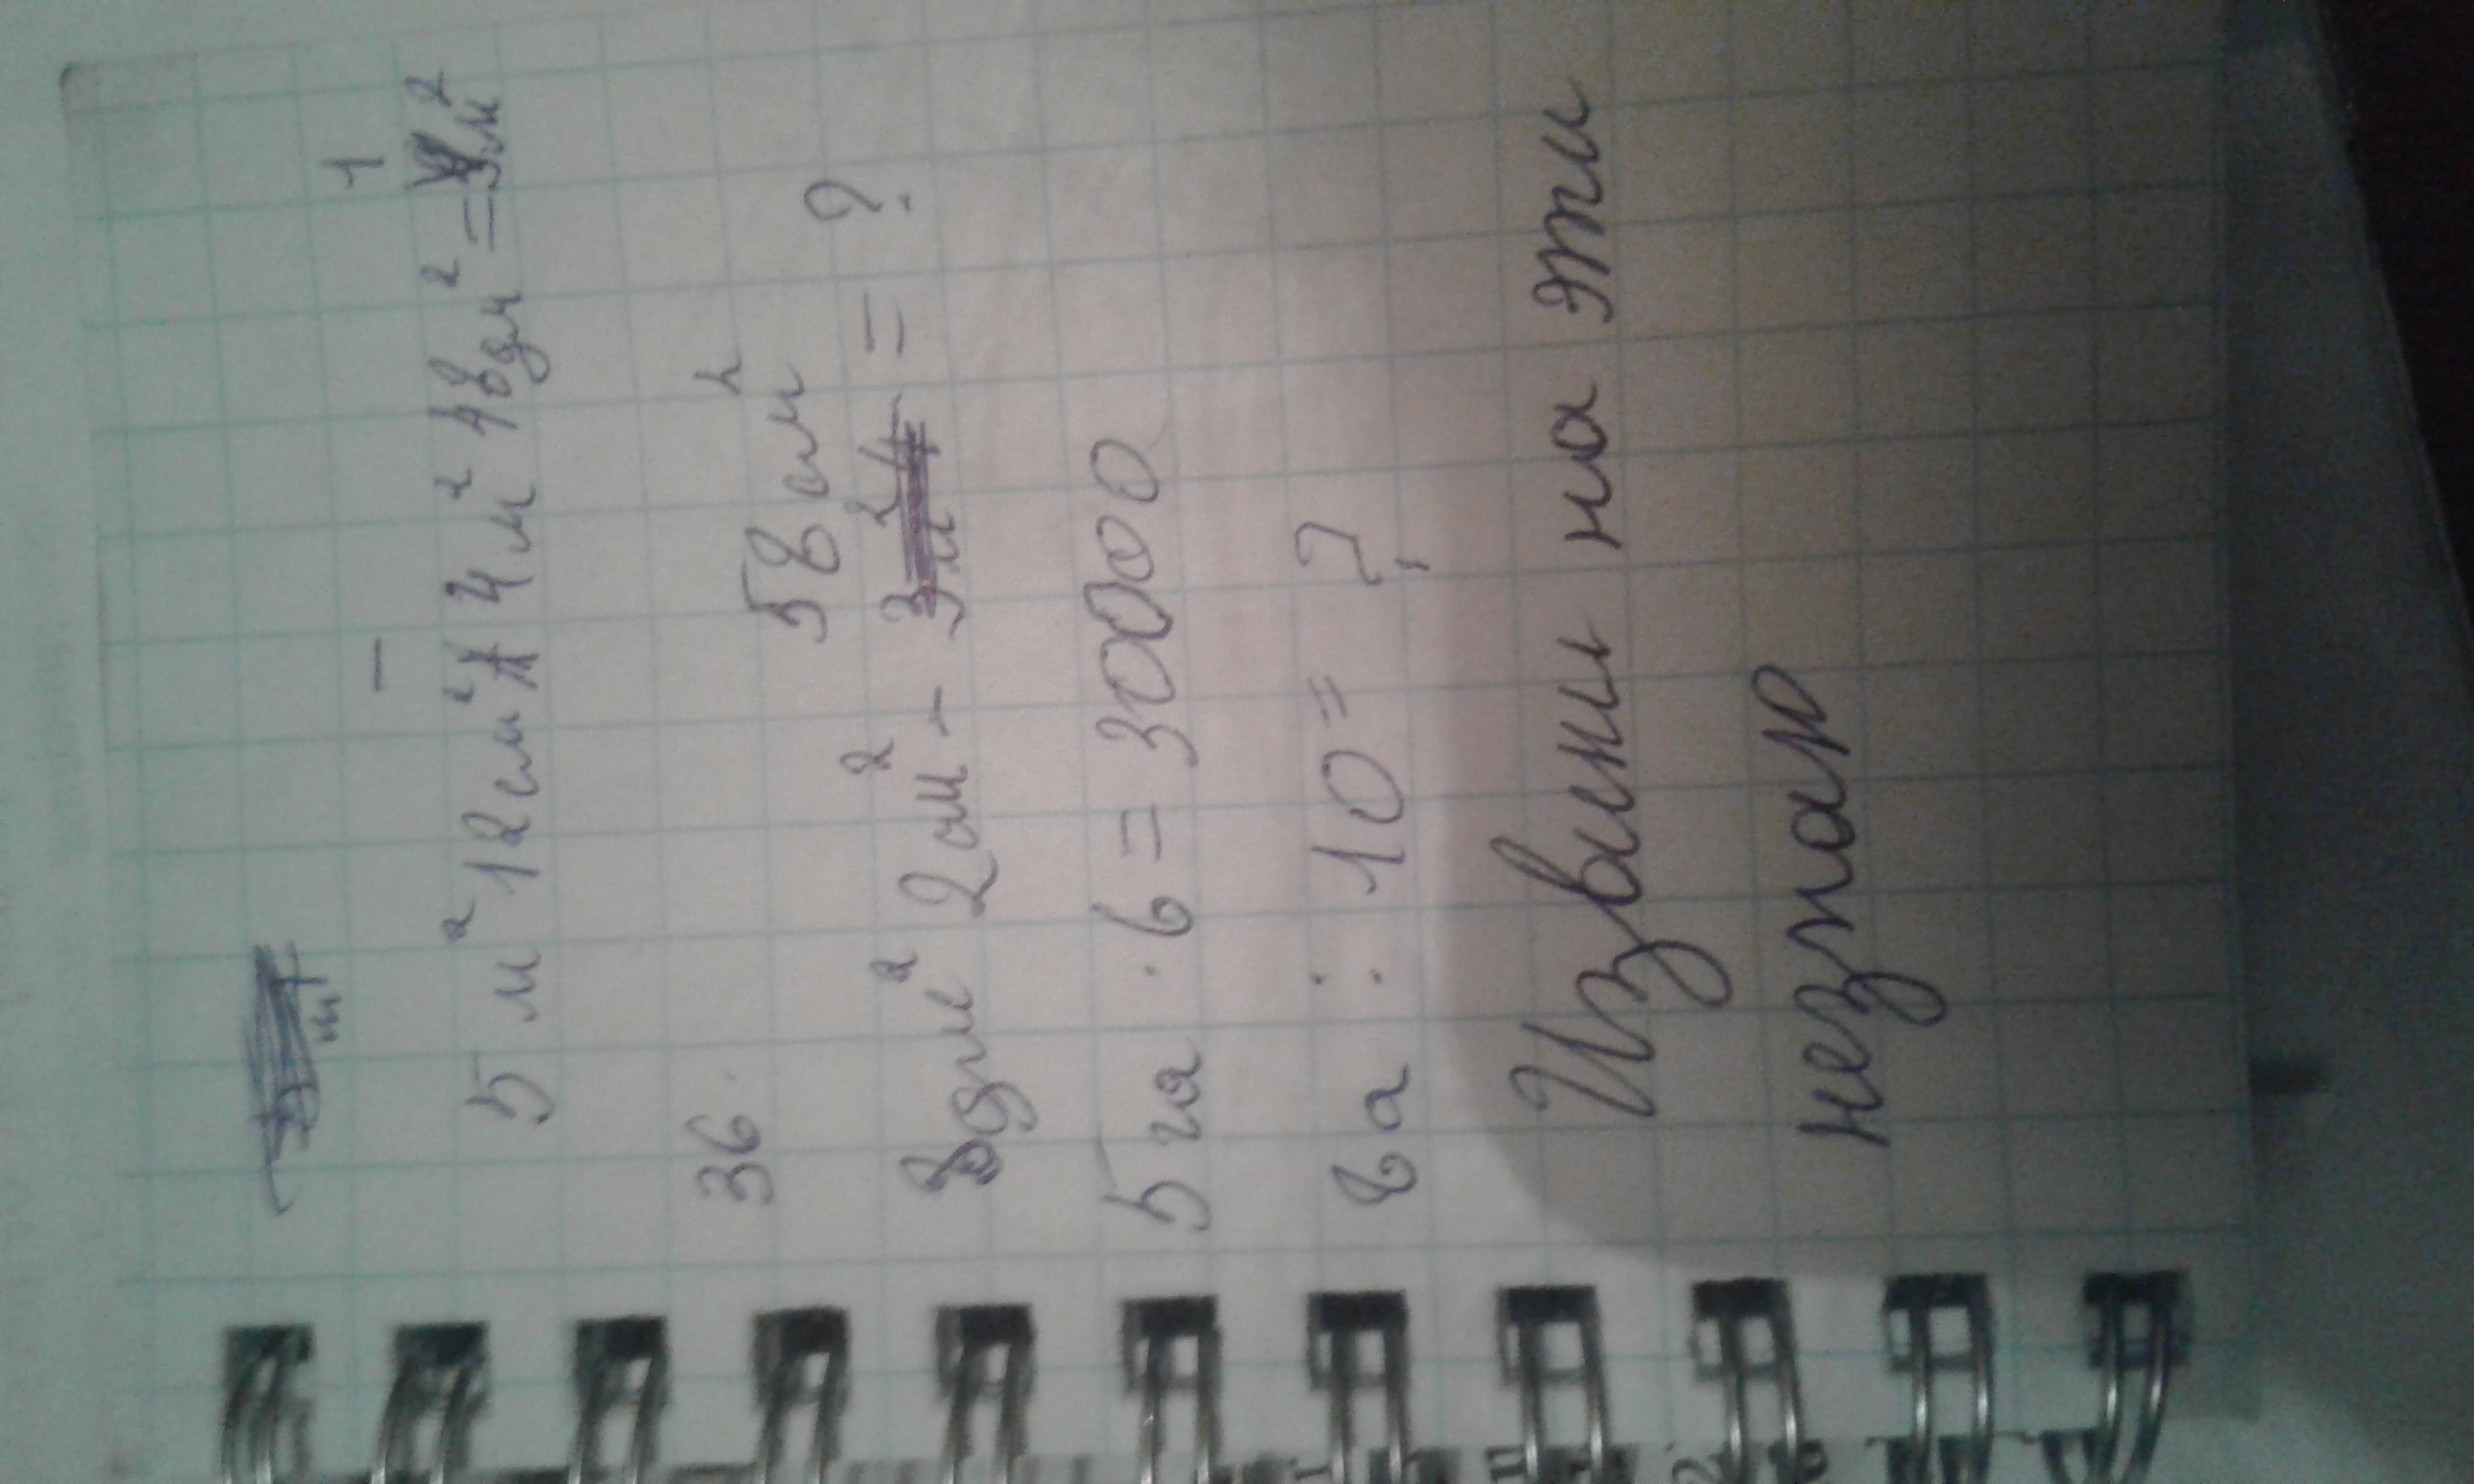 5 м² 12 см² - 4 м² 48 дм² = 1 м²
36
58 см²
8 дм² 2 см² - = ?
5 га · 6 = 30000
8 а : 10 = ?
Извини на эти
незнаю